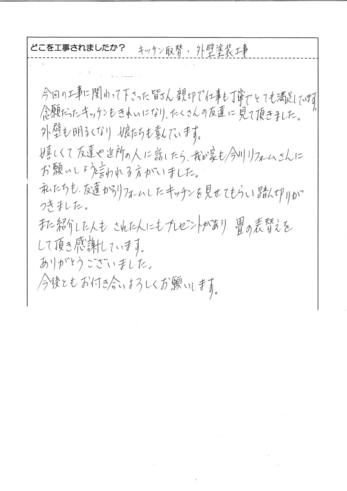 どこを工事されましたか？ キッチン取替・外壁塗装工事
今回の工事に関わって下さった皆さん親切で仕事も丁寧でとても満足しています。
念願だったキッチンもきれいになり、たくさんの友達に見て頂きました。
外壁も明るくなり娘たちも喜んでいます。
嬉しくて友達や近所の人に話したら、我が家も今川リフォームさんに
お願いしようと言われる方がいました。
私たちも、友達からリフォームしたキッチンを見せてもらい踏ん切りが
つきました。
また紹介した人もされた人にもプレゼントがあり畳の表替えを
して頂き感謝しています。
ありがとうございました。
今後ともお付き合いよろしくお願いします。